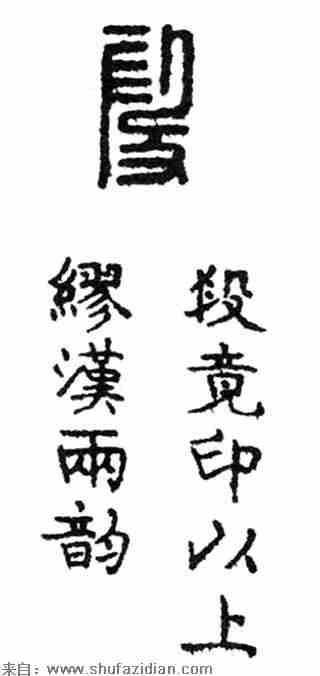 段竟印以上
繆漢兩韵
来自：www.shufazidian.com